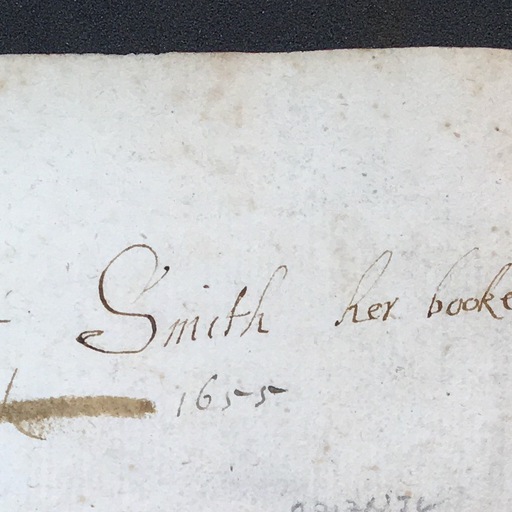 Smith her booke
1655